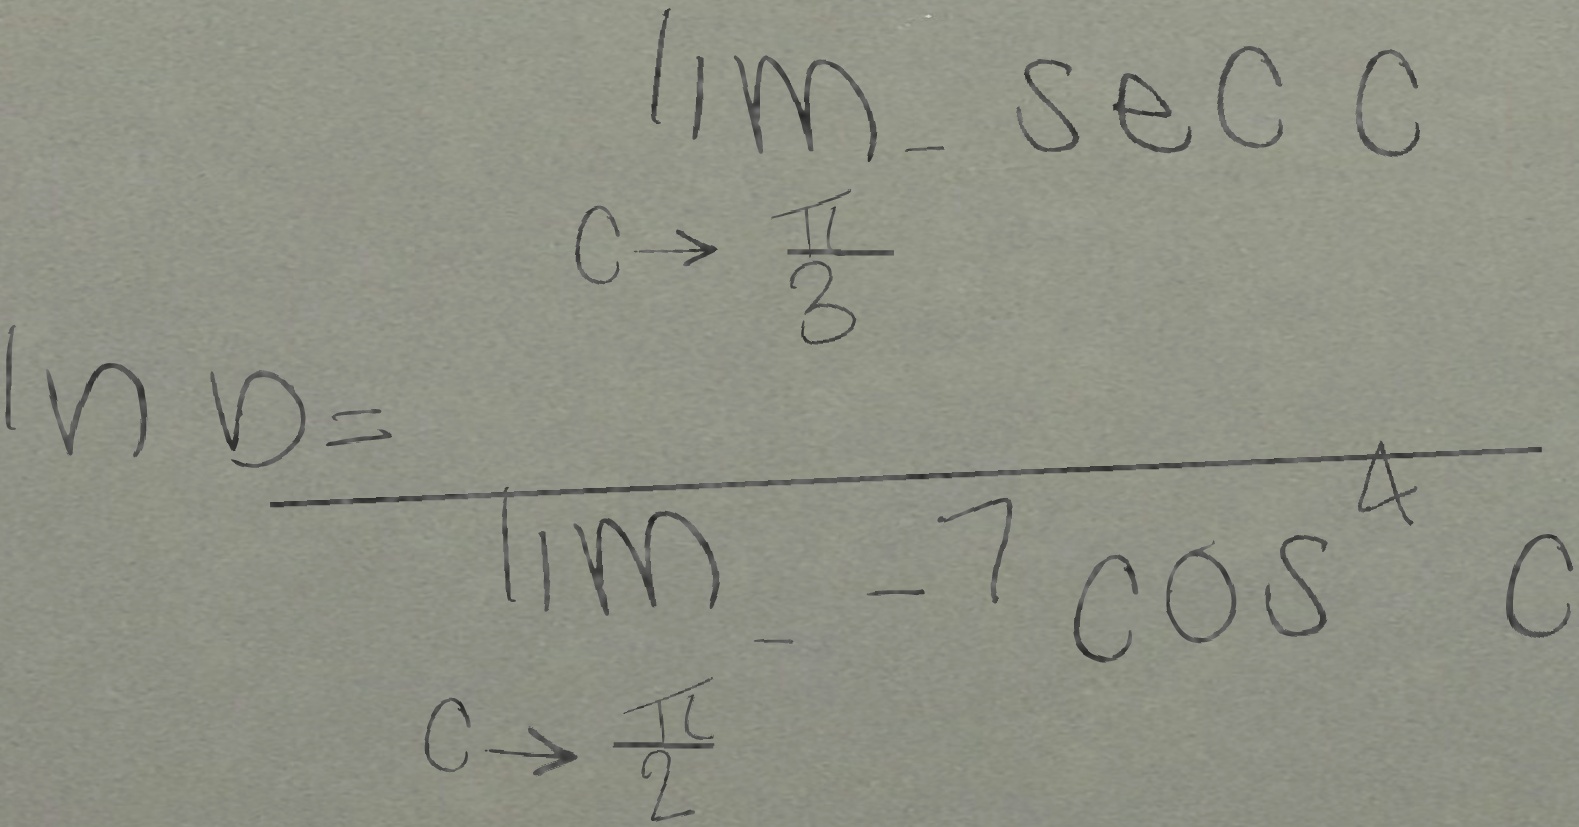 ln b = \frac{\lim_{c \to \frac{\pi}{3}^-} \sec c}{\lim_{c \to \frac{\pi}{2}^-} -7 \cos^4 c}